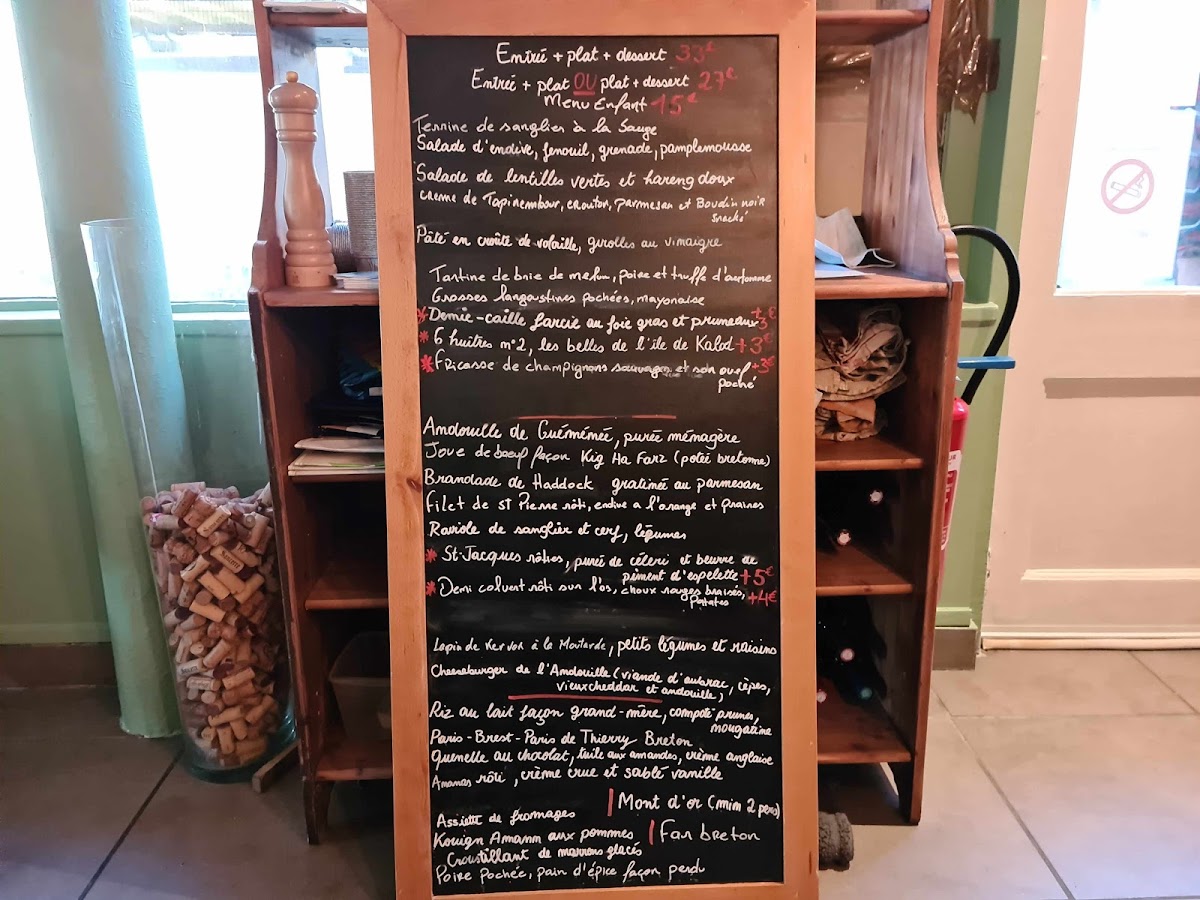 Entrée + plat + dessert 33€
Entrée + plat OU plat + dessert 27€
Menu Enfant 15€
Terrine de sanglier à la Sauge
Salade d'endive, fenouil, grenade, pamplemousse
Salade de lentilles vertes et hareng doux
creme de Topinembour, crouton, parmesan et Boudin noir
snacké
Pâté en croûte de volaille, girolles au vinaigre
Tartine de brie de melun, poire et truffe d'automne
Grosses langoustines pochées, mayonaise
* Demie-caille farcie au foie gras et pruneaux +3€
* 6 huitres n°2, les belles de l'ile de Kalod +3€
* Fricasse de champignons sauvages et son oeuf +3€
poché
Andouille de Guéménée, purée ménagère
Joue de boeuf façon Kig Ha Farz (potée bretonne)
Brandade de Haddock gratinée au parmesan
filet de St Pierre rôti, endive a l'orange et praires
Raviole de sanglier et cerf, légumes
* St-Jacques rôties, purée de céleri et beurre de
piment d'espelette +5€
* Demi colvert rôti sur l'os, choux rouges braisés, +4€
Patates
Lapin de Kervon à la Moutarde, petits légumes et raisins
Cheeseburger de l'Andouille (viande d'aubrac, cèpes,
vieux cheddar et andouille)
Riz au lait façon grand-mère, compoté prunes,
nougatine
Paris-Brest-Paris de Thierry Breton
Quenelle au chocolat, tuile aux amandes, crème anglaise
Ananas rôti, crème crue et sablé vanille
Mont d'or (min 2 pers)
Assiette de fromages
Kouign Amann aux pommes
Far breton
Croustillant de marrons glacés
Poire Pochée, pain d'épice façon perdu